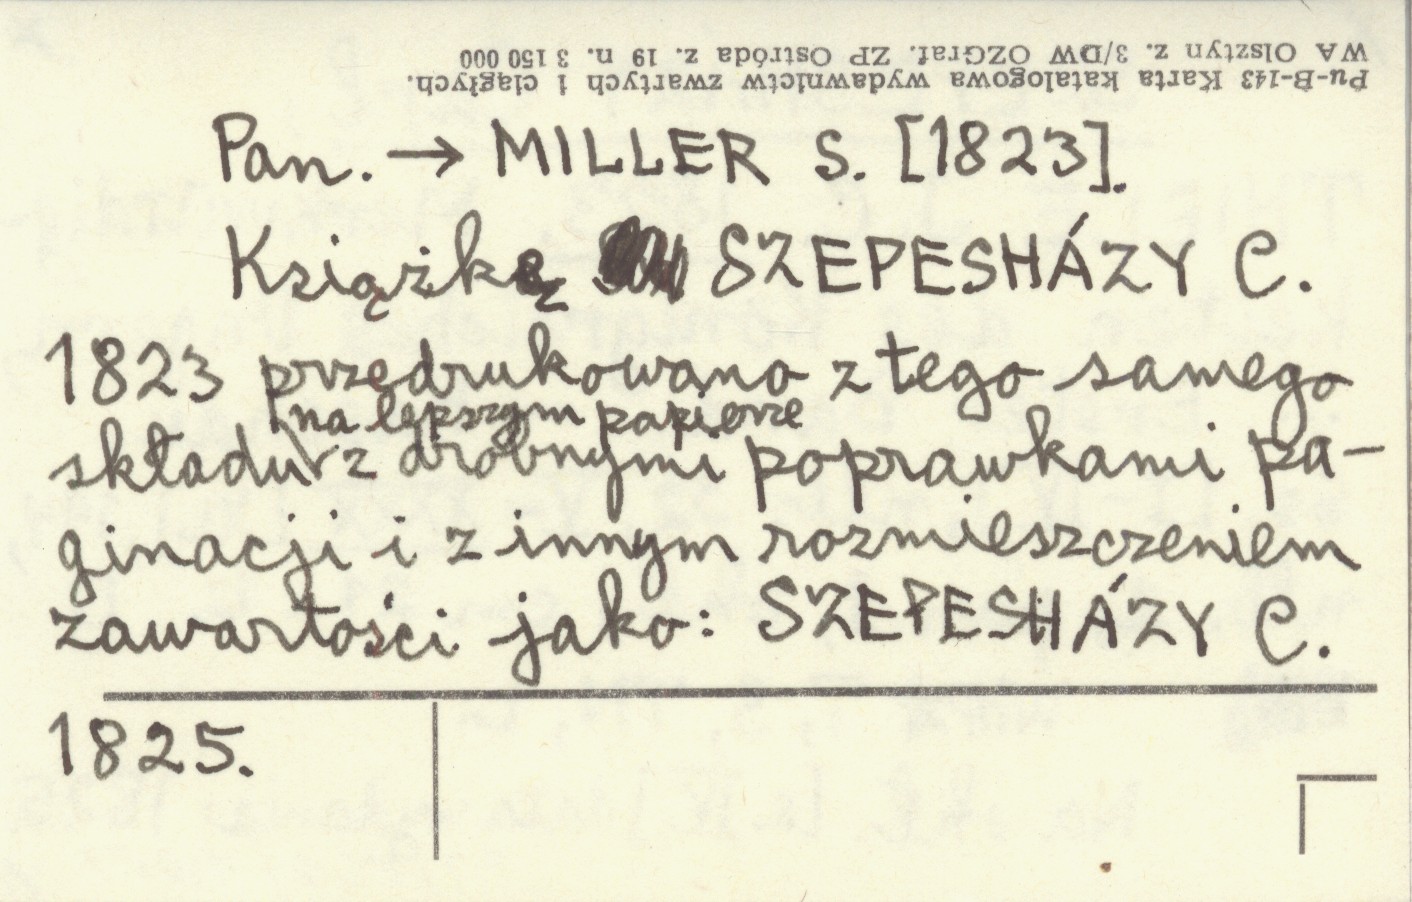 WA Olsztyn z. 3/DW OZGraf. ZP Ostróda z. 19 n. 3 150 000
Pu-B-143 Karta katalogowa wydawnictw zwartych i ciągłych.
Pan. → MILLER S. [1823].
Książkę SZEPESHÁZY C.
1823 przedrukowano z tego samego
na lepszym papierze
składu z drobnymi poprawkami pa-
ginacji i z innym rozmieszczeniem
zawartości jako: SZEPESHÁZY C.
1825.